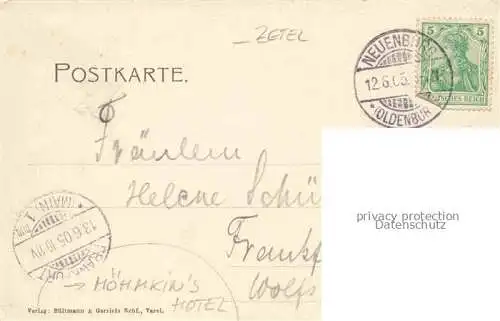 ZETEL
POSTKARTE.
NEUENBURG
12.6.05.
*(OLDENBUR
5
DEUTSCHES REICH
Fräulein
Helene Schü
Frankf
Wolfs
privacy protection
Datenschutz
FRANKFURT
13.6.05
(MAIN) 1
→ HÖMMKIN'S
HOTEL
Verlag: Bültmann & Gerriets Nchf., Varel.